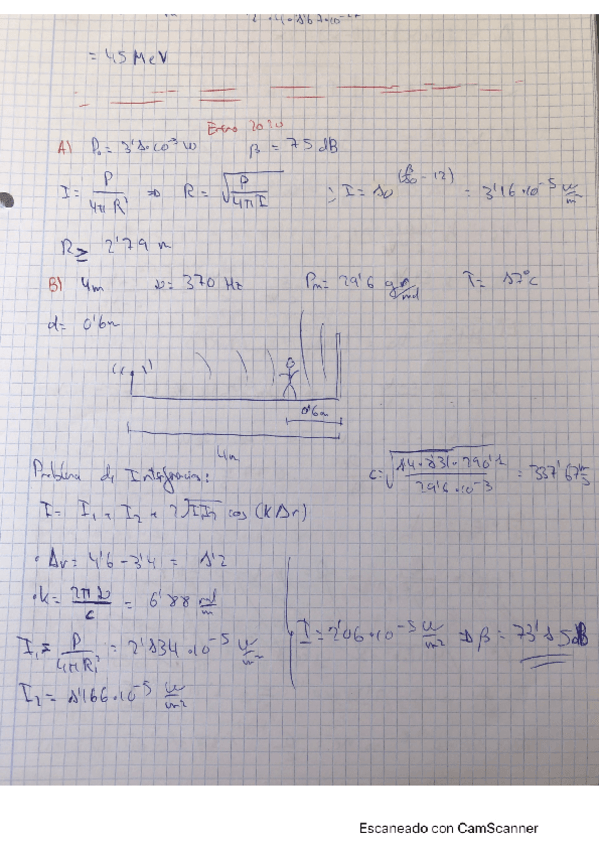 = 45 MeV
Enero 2020
A) P₀ = 3'1·10⁻³ W β = 75 dB
I = P/4πR² ⇒ R = √(P/4πI) ; I = 10^(β/10 - 12) = 3'16·10⁻⁵ W/m
R ≥ 2'79 m
B) 4m ν = 370 Hz Pm = 29'6 gr/mol T = 17°C
d = 0'6m
0'6m
4m
Problema de Interferencias: c = √(1'4·8'31·290'1/29'6·10⁻³) = 337'67 m/s
I = I₁ + I₂ + 2√II₂ cos (KΔr)
· Δr = 4'6 - 3'4 = 1'2
· k = 2πν/c = 6'88 rad/m
I₁ = P/4πR₁² = 2'134·10⁻⁵ W/m² I = 2'06·10⁻⁵ W/m² ⇒ β = 73'15 dB
I₂ = 1'166·10⁻⁵ W/m²
Escaneado con CamScanner